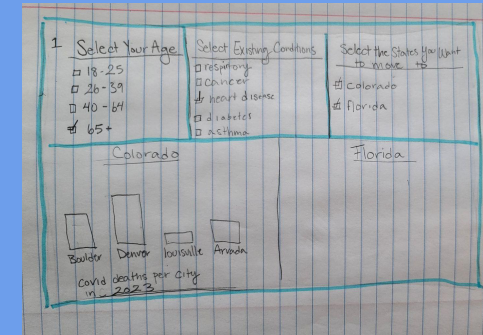 1 Select Your Age
18-25
26-39
40-64
65+
Select Existing Conditions
respirory
cancer
heart disease
diabetes
asthma
Select the States You Want
to move to
Colorado
florida
Colorado
Boulder Denver louisville Arvada
Covid deaths per city
in 2023
Florida